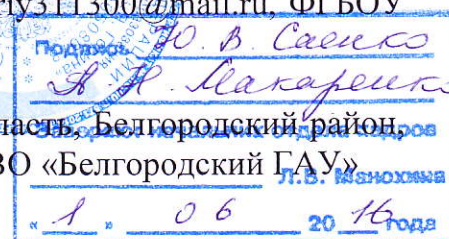 riy311300@mail.ru, ФГБОУ
Подпись Ю. В. Саенко
А. Н. Макаренко
ласть, Белгородский район,
ВО «Белгородский ГАУ»
Л.В. Манохина
« 1 » 06 20 16 года